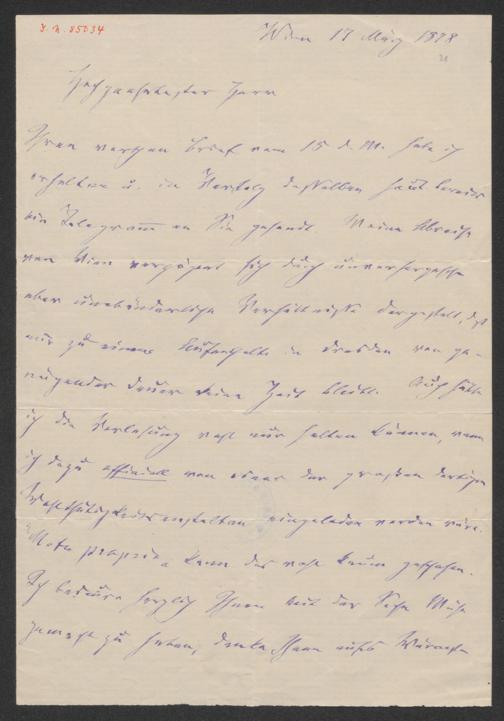 I. N. 85034
Wien 17 März 1878
Hochgeehrtester Herr
Ihren werthen Brief vom 15 d. M. habe ich
erhalten u. in Verfolg desselben heut bereits
ein Telegramm an Sie gesandt. Meine Abreise
von Wien verzögert sich durch unvorhergesehene
aber unabänderliche Verhältnisse dergestalt, daß
mir zu einem Aufenthalte in Dresden von ge-
nügender Dauer keine Zeit bleibt. Auch hätte
ich die Vorlesung wohl nur halten können, wenn
ich dazu officiell von einer der großen dortigen
Wohlthätigkeitsanstalten eingeladen worden wäre.
Motu proprio kann das wohl kaum geschehen.
Ich bedaure herzlich Ihnen mit der Sache Mühe
gemacht zu haben, danke Ihnen aufs Wärmste